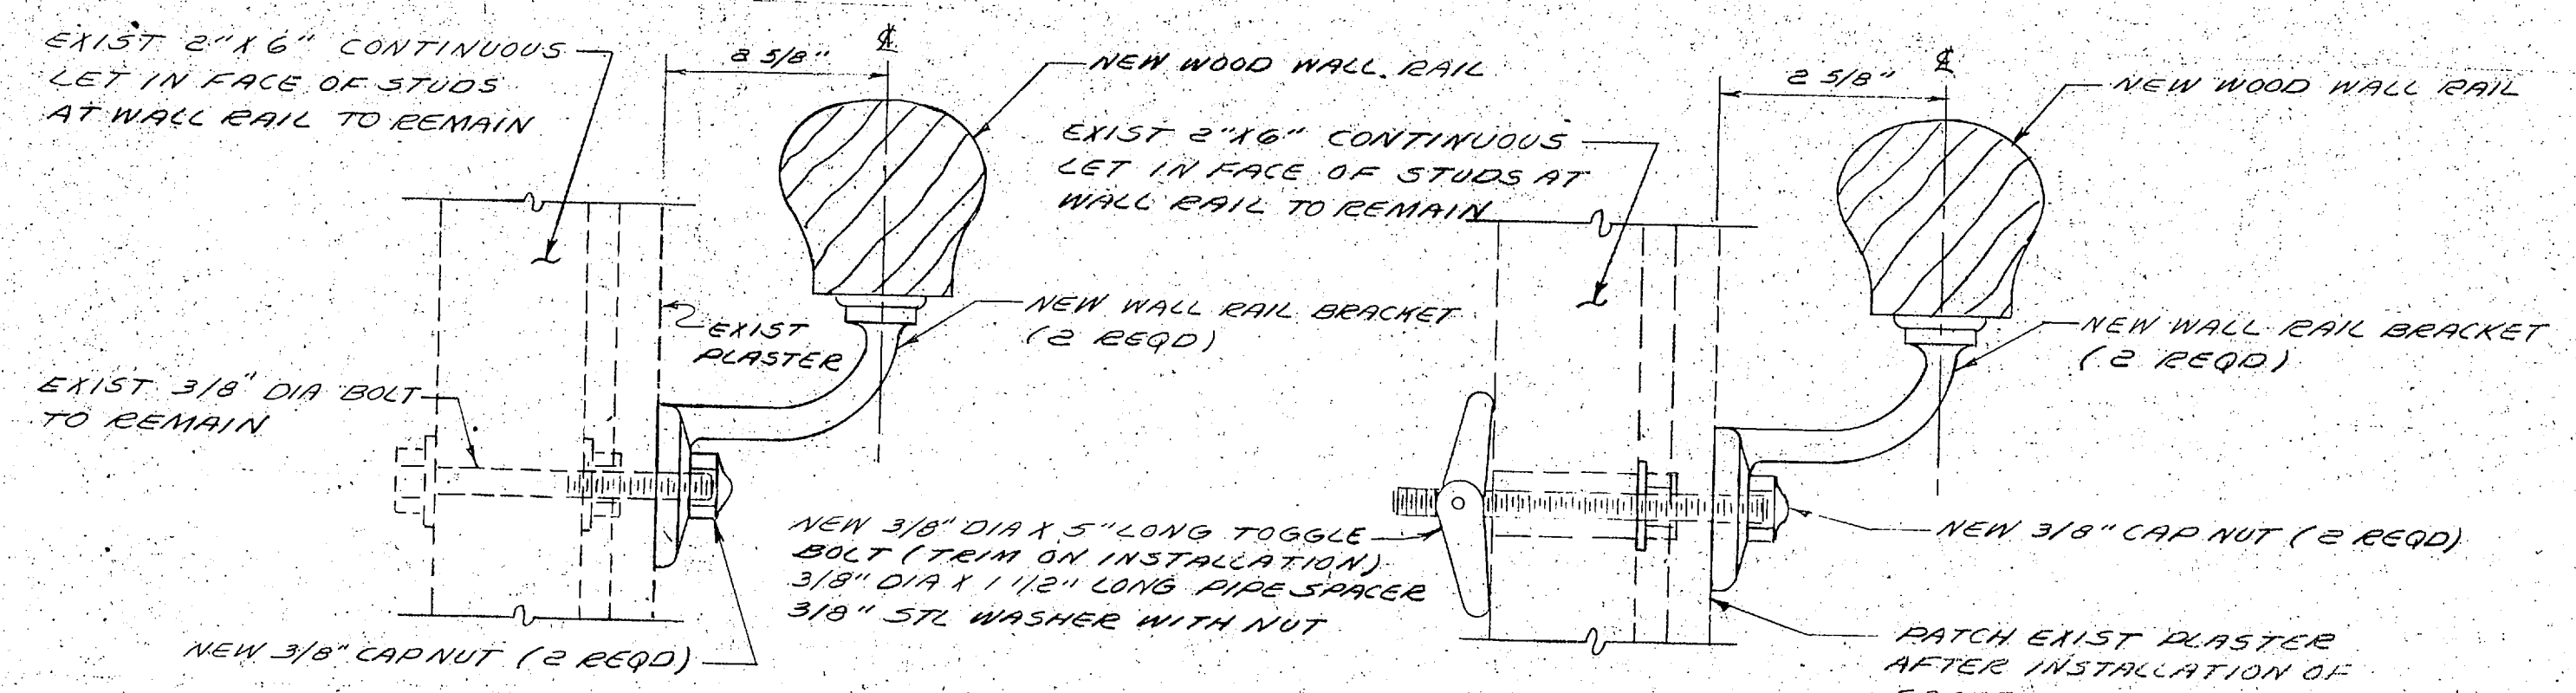 EXIST 2"X 6" CONTINUOUS
LET IN FACE OF STUDS
AT WALL RAIL TO REMAIN
2 5/8"
℄
NEW WOOD WALL RAIL
EXIST PLASTER
NEW WALL RAIL BRACKET
(2 REQD)
EXIST 3/8" DIA BOLT
TO REMAIN
NEW 3/8" CAP NUT (2 REQD)
EXIST 2"X6" CONTINUOUS
LET IN FACE OF STUDS AT
WALL RAIL TO REMAIN
2 5/8"
℄
NEW WOOD WALL RAIL
NEW WALL RAIL BRACKET
(2 REQD)
NEW 3/8" DIA X 5" LONG TOGGLE
BOLT (TRIM ON INSTALLATION)
3/8" DIA X 1 1/2" LONG PIPE SPACER
3/8" STL WASHER WITH NUT
NEW 3/8" CAP NUT (2 REQD)
PATCH EXIST PLASTER
AFTER INSTALLATION OF